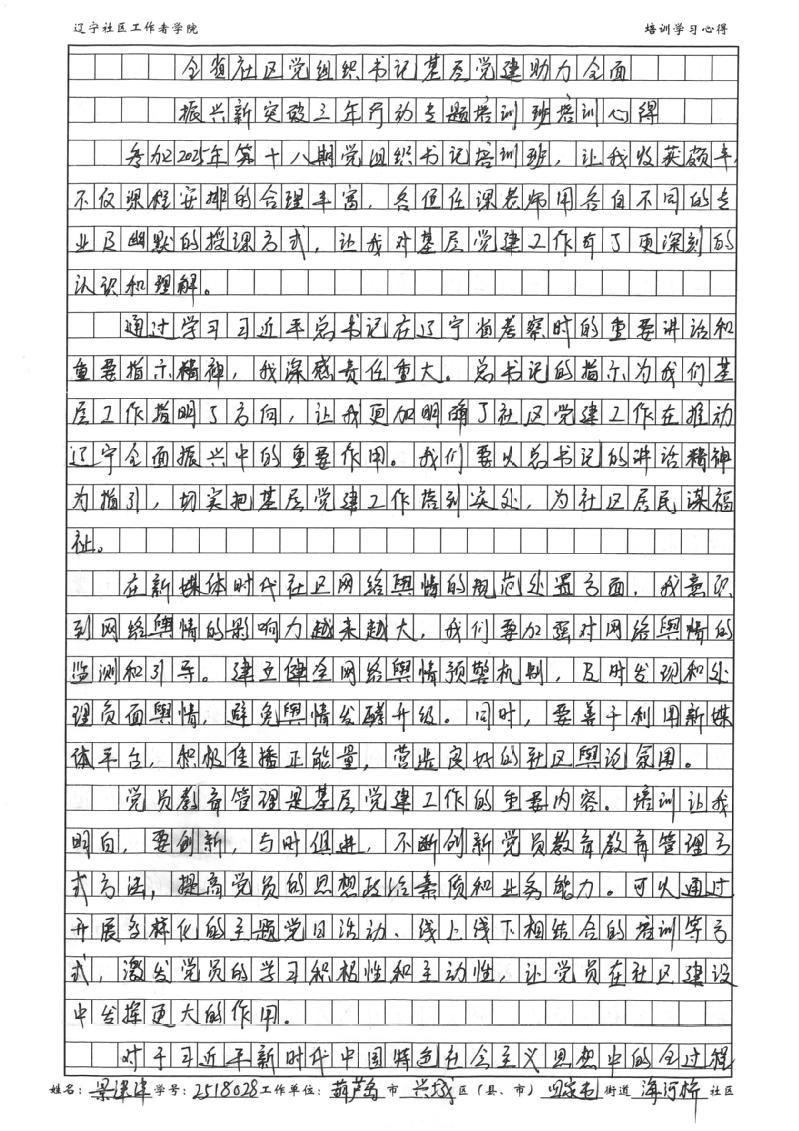 辽宁社区工作者学院 培训学习心得
全省社区党组织书记基层党建助力全面
振兴新突破三年行动专题培训班培训心得
参加2025年第十八期党组织书记培训班，让我收获颇丰，
不仅课程安排的合理丰富，各位任课老师用各自不同的专
业及幽默的授课方式，让我对基层党建工作有了更深刻的
认识和理解。
通过学习习近平总书记在辽宁省考察时的重要讲话和
重要指示精神，我深感责任重大。总书记的指示为我们基
层工作指明了方向，让我更加明确了社区党建工作在推动
辽宁全面振兴中的重要作用。我们要以总书记的讲话精神
为指引，切实把基层党建工作落到实处，为社区居民谋福
祉。
在新媒体时代社区网络舆情的规范处置方面，我意识
到网络舆情的影响力越来越大，我们要加强对网络舆情的
监测和引导。建立健全网络舆情预警机制，及时发现和处
理负面舆情，避免舆情发酵升级。同时，要善于利用新媒
体平台，积极传播正能量，营造良好的社区舆论氛围。
党员教育管理是基层党建工作的重要内容。培训让我
明白，要创新，与时俱进，不断创新党员教育教育管理方
式方法，提高党员的思想政治素质和业务能力。可以通过
开展多样化的主题党日活动、线上线下相结合的培训等方
式，激发党员的学习积极性和主动性，让党员在社区建设
中发挥更大的作用。
对于习近平新时代中国特色社会主义思想中的全过程
姓名：景津津 学号：2518028 工作单位：葫芦岛 市 兴城 区（县、市） 四家屯 街道 海河桥 社区